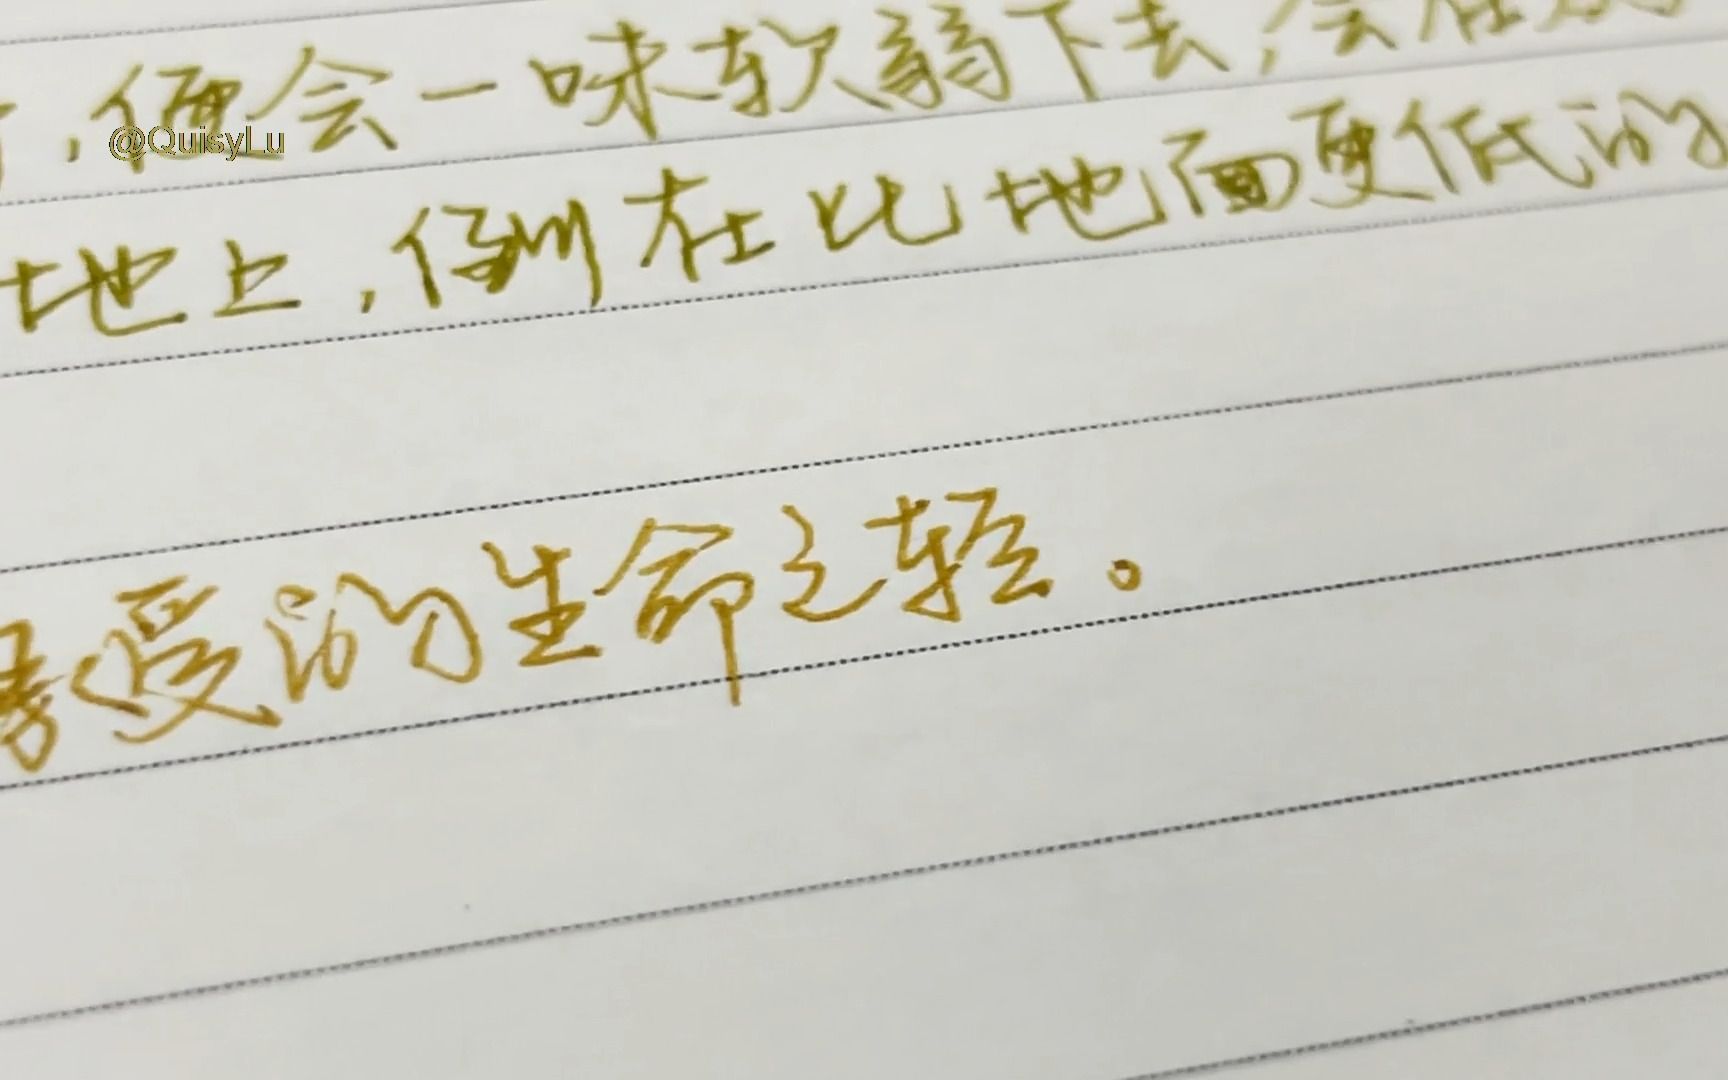 ，便会一味软弱下去，会在
@QuisyLu
地上，倒在比地面更低的
受的生命之轻。